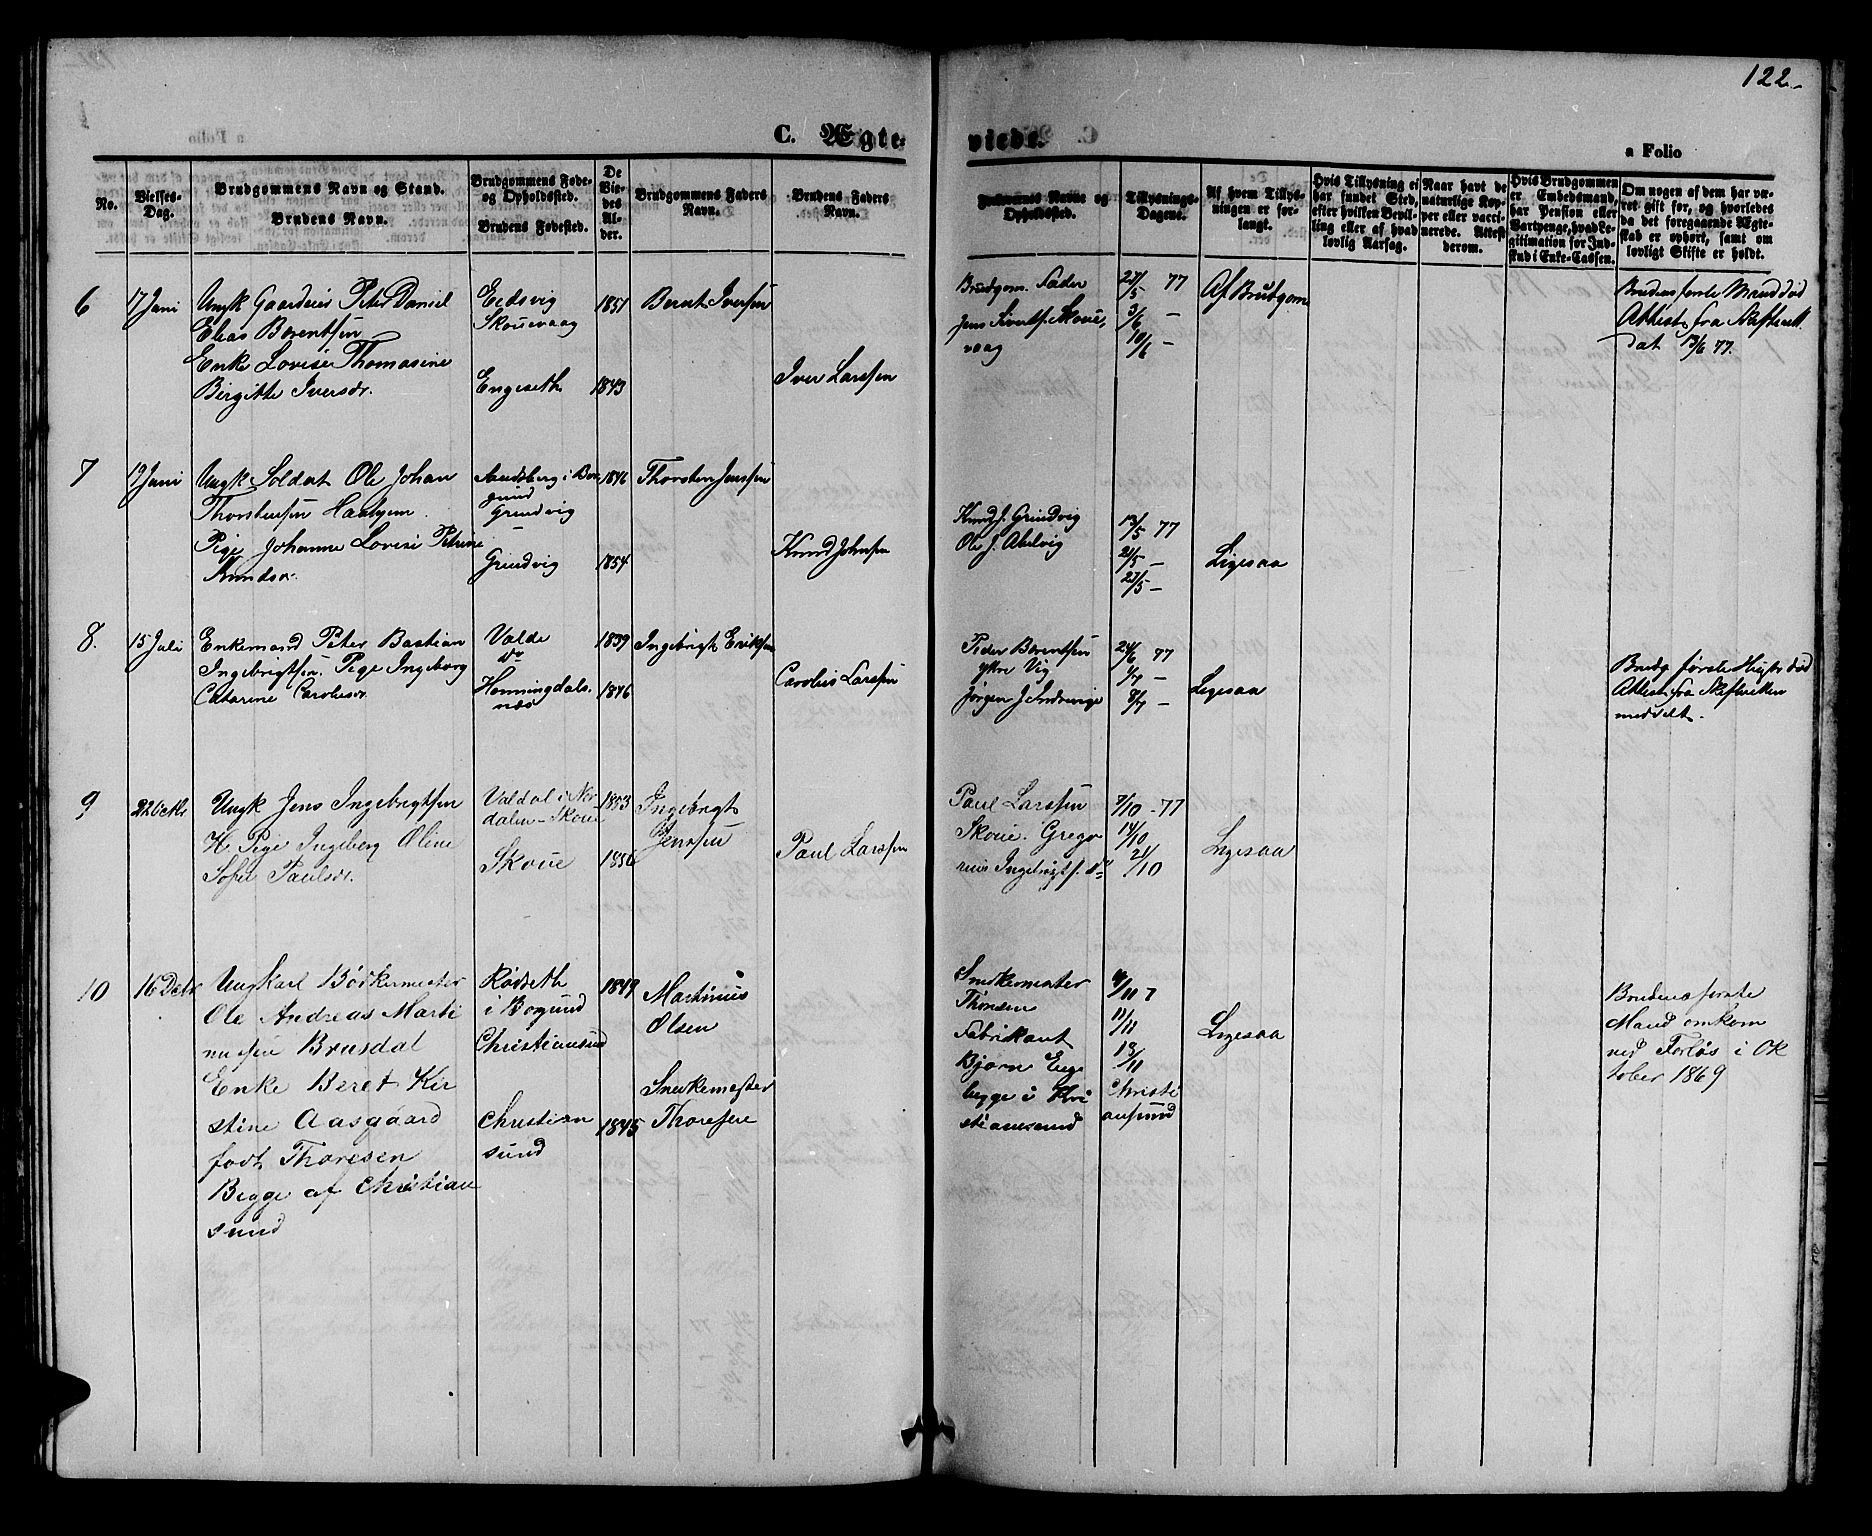 122.
C. Ægte-
viede.
a Folio
No.
Vielses-
Dag.
Brudgommens Navn og Stand.
Brudens Navn.
Brudgommens Føde-
og Opholdssted.
Brudens Fødested.
De
Vie-
des
Al-
der.
Brudgommens Faders
Navn.
Brudens Faders
Navn.
Forlovernes Navne og
Opholdssted.
Tillysnings-
Dagene.
Af hvem Tillys-
ningen er for-
langt.
Hvis Tillysning ei
har fundet Sted,
efter hvilken Bevil-
ling eller af hvad
lovlig Aarsag.
Naar havt de
naturlige Kop-
per eller vacci-
nerede. Attest
derom.
Hvis Brudgommen
er Embedsmand,
har Pension eller
Vartpenge, hvad Le-
gitimation for Ind-
skud i Enke-Cassen.
Om nogen af dem har væ-
ret gift før, og hvorledes
da det foregaaende Ægte-
skab er ophørt, samt om
lovligt Skifte er holdt.
6
17 Juni
Ungk Gaardeier Peter Daniel
Elias Berentsen
Enke Lovise Thomasine
Birgitte Iversdr.
Eedsvig
Skouevaag
Engeseth
1851
1843
Bernt Iversen
Iver Larssen
Brudgom. Fader
Jens Sivertsf. Skoue,
vaag
27/5 77
3/6 —
10/6 —
Af Brudgom
Brudens første Mand død
Attest fra Skifteret
dat 13/6 77.
7
19 Juni
Ungk Soldat Ole Johan
Thorstensen
Pige Johanne Lovise Petrine
Knudsdr.
i Bor
gund
Grindvig
Grindvig
1846
1854
Thorsten Jenssen
Knud Johnsen
Knud J. Grindvig
Ole J.
13/5 77
21/5 —
27/5 —
Ligesaa
8.
15 Juli
Enkemand Peter Bastian
Ingebrigtsen. Pige Ingeborg
Catarine Carolusdr.
Valde
do
Honningdals.
næs
1839
1846
Ingebrigt Eriksen
Carolus Larssen
Peder Berentsen
Ytre Vig
Jørgen J.
24/6 77
1/7 —
8/7 —
Ligesaa
Brudg første Hustr død
Attest fra Skifteretten
meddelt.
9
22 Octbr
Ungk Jens Ingebrigtsen
H Pige Ingeborg Oline
Sofie Paulsdr.
Valdal i Nor
dalen – Skoue
Skoue
1853
1856
Ingebrigt
Jenssen
Paul Larssen
Paul Larssen
Skoue. Grego
rius Ingebrigtsf. do
7/10 - 77
14/10
21/10
Ligesaa
10
16 Decbr
Ungkarl Bødkermester
Ole Andreas Marti
nussen Brusdal
Enke Beret Kir
stine Aasgaard
født Thoresen
Begge af Christian
sund
Rødseth
i Borgund
Christiansund
Christian
sund
1849
1845
Martinus
Olsen
Snedkermester
Thoresen
Snedkermester
Thoresen
Fabrikant
Bjørn Enge
begge i Kri
stiansund
4/11 7
11/11
18/11
Christi
ansund
Ligesaa
Brudens første
Mand omkom
ved Forlis i Ok
tober 1869